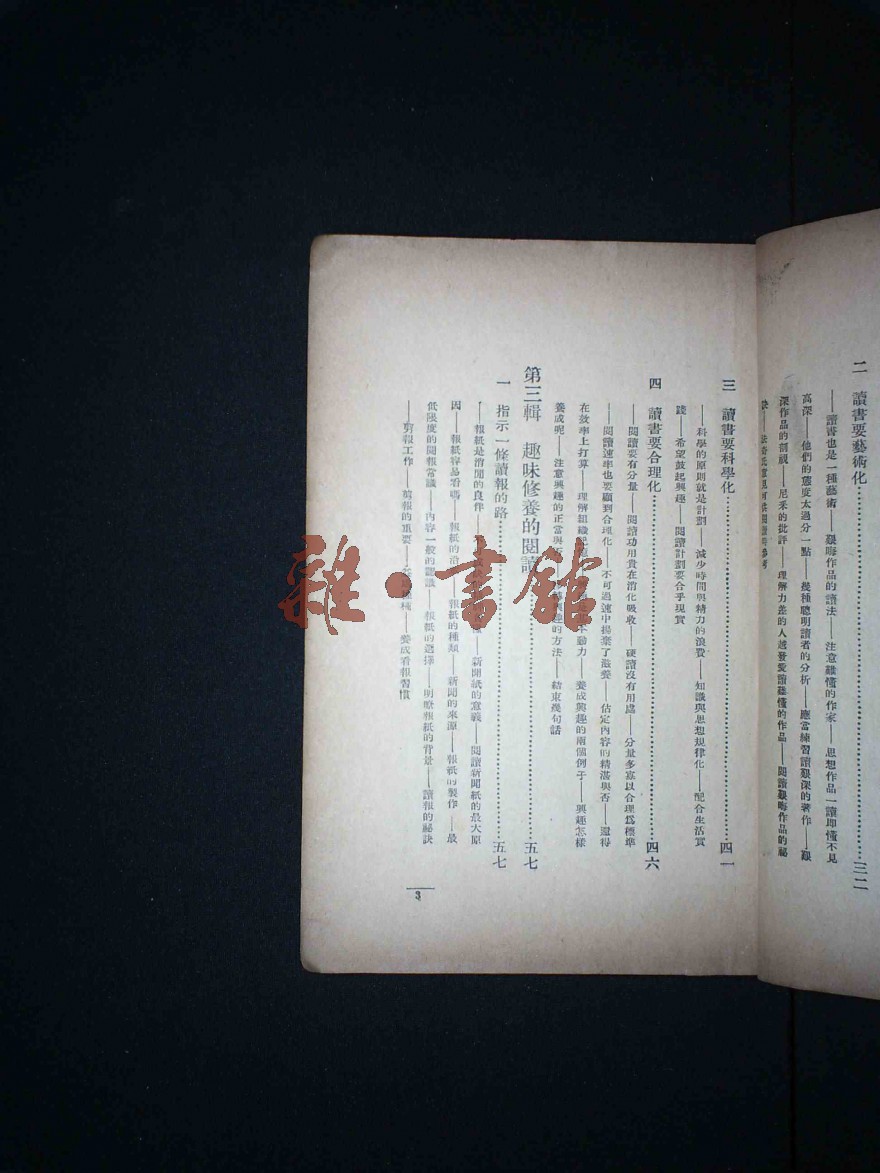 二 讀書要藝術化……三二
——讀書也是一種藝術——艱晦作品的讀法——注意難懂的作家——思想作品一讀即懂不見
高深——他們的態度太過分一點——幾種聰明讀者的分析——應當練習讀艱深的著作——艱
深作品的剖視——尼采的批評——理解力差的人越發愛讀難懂的作品——閱讀艱晦作品的祕
訣——法奇氏意見可供閱讀時參考
三 讀書要科學化……四一
——科學的原則就是計劃——減少時間與精力的浪費——知識與思想規律化——配合生活實
踐——希望鼓起興趣——閱讀計劃要合乎現實
四 讀書要合理化……四六
——閱讀要有分量——閱讀功用貴在消化吸收——硬讀沒有用處——分量多寡以合理爲標準
——閱讀速率也要顧到合理化——不可過速中揚棄了滋養——估定內容的精湛與否——還得
在效率上打算——理解組織 動力——養成興趣的兩個例子——興趣怎樣
養成呢——注意興趣的正當與 的方法——結束幾句話
第三輯 趣味修養的閱讀……五七
一 指示一條讀報的路……五七
——報紙是消閒的良伴 ——新聞紙的意義——閱讀新聞紙的最大原
因——報紙容易看嗎——報紙的沿 ——報紙的種類——新聞的來源——報紙的製作——最
低限度的閱報常識——內容一般的認識——報紙的選擇——明瞭報紙的背景——讀報的祕訣
——剪報工作——剪報的重要 種——養成看報習慣
3
雜·書館